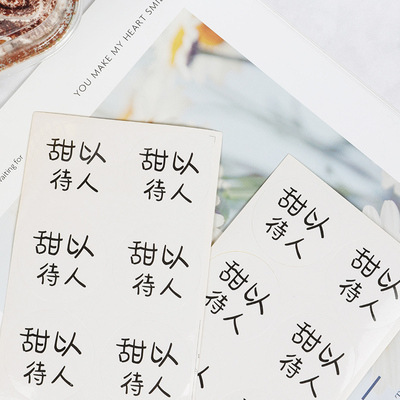 YOU MAKE MY HEART SMI
aiting for
甜以
待人
甜以
待人
甜以
待人
甜以
待人
甜以
待人
甜以
待人
甜以
待人
甜以
待人
甜以
待人
甜以
待人